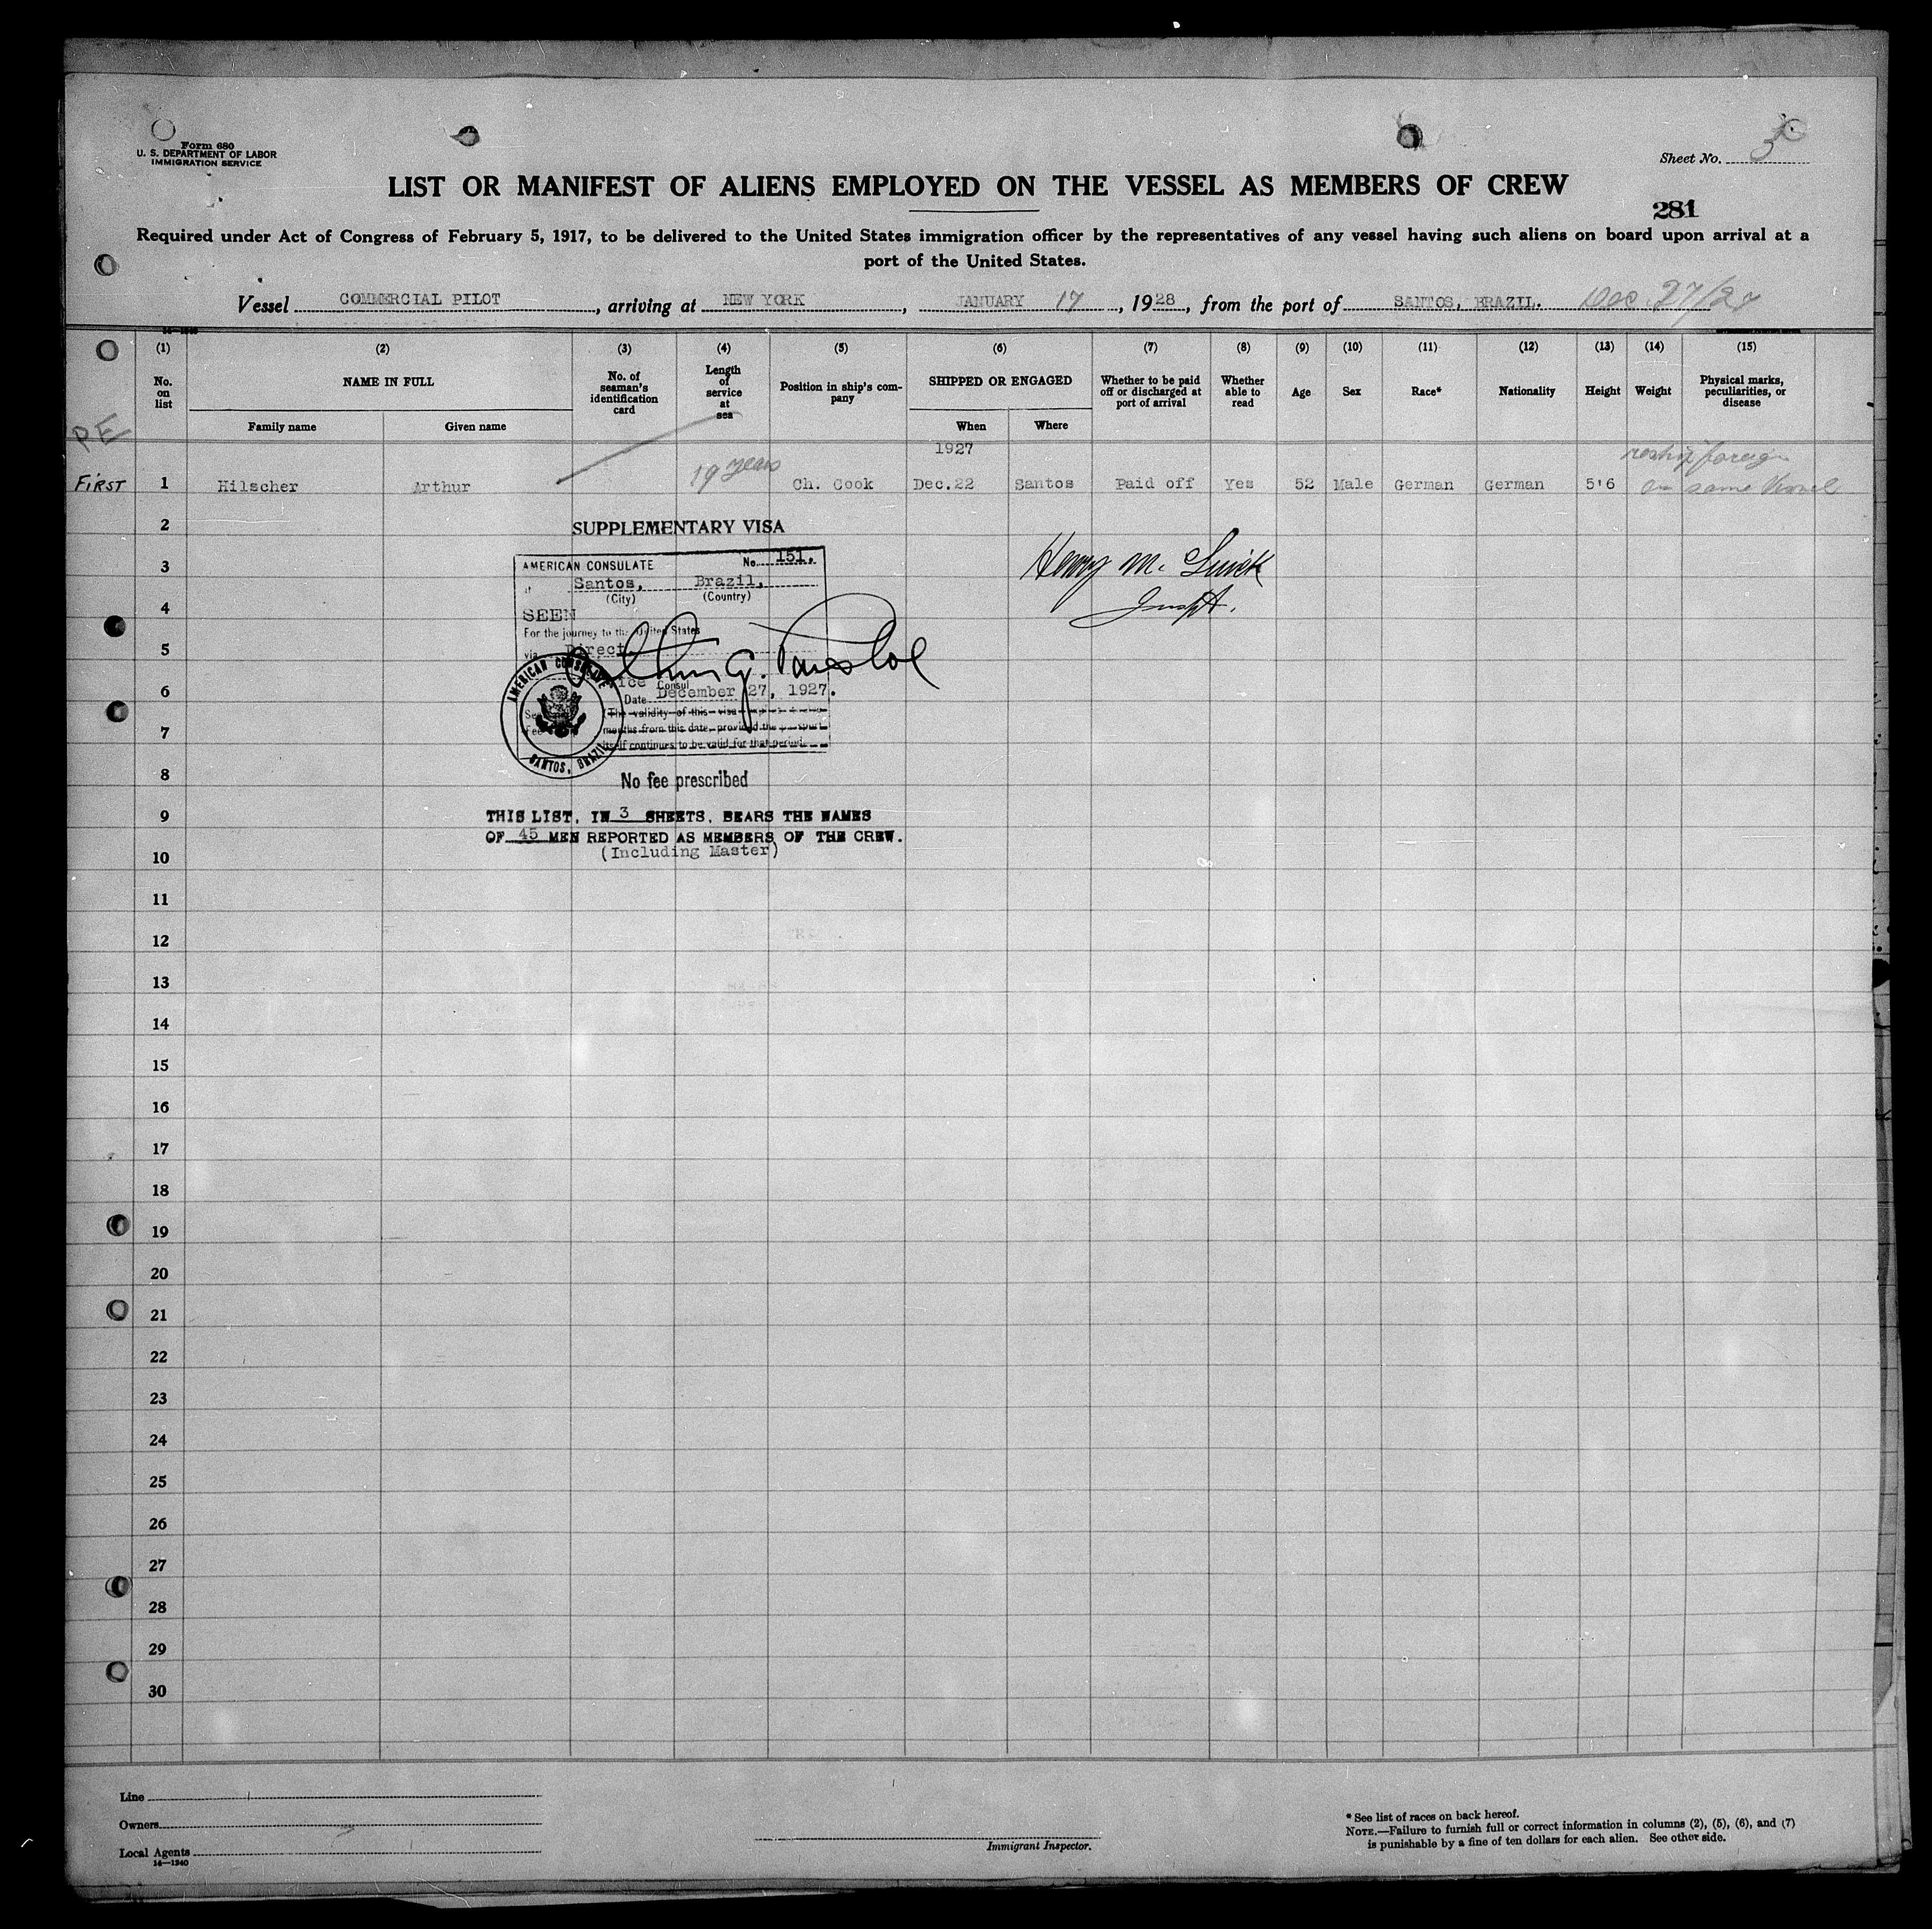 Form 680
U. S. DEPARTMENT OF LABOR
IMMIGRATION SERVICE
Sheet No. 3
LIST OR MANIFEST OF ALIENS EMPLOYED ON THE VESSEL AS MEMBERS OF CREW
281
Required under Act of Congress of February 5, 1917, to be delivered to the United States immigration officer by the representatives of any vessel having such aliens on board upon arrival at a
port of the United States.
Vessel COMMERCIAL PILOT, arriving at NEW YORK, JANUARY 17, 1928, from the port of SANTOS, BRAZIL. Dec. 27/27
(1) (2) (3) (4) (5) (6) (7) (8) (9) (10) (11) (12) (13) (14) (15)
No. on list
NAME IN FULL
Family name
Given name
No. of seaman's identification card
Length of service at sea
Position in ship's company
SHIPPED OR ENGAGED
When
Where
Whether to be paid off or discharged at port of arrival
Whether able to read
Age
Sex
Race*
Nationality
Height
Weight
Physical marks, peculiarities, or disease
PE
1927
reship foreign
FIRST 1 Hilscher Arthur 19 years Ch. Cook Dec.22 Santos Paid off Yes 52 Male German German 5'6 on same Vessel
2
SUPPLEMENTARY VISA
3
AMERICAN CONSULATE No. 151.
at Santos, Brazil,
(City) (Country)
Henry M.
Inspt.
4
SEEN
For the journey to the United States
5
via Direct.
Vice Consul
6
Date December 27, 1927.
(The validity of this visa
7
months from this date, provided the passport
itself continues to be valid for that period
AMERICAN CONSULATE
SANTOS, BRAZIL
8
No fee prescribed
9
THIS LIST, IN 3 SHEETS, BEARS THE NAMES
OF 45 MEN REPORTED AS MEMBERS OF THE CREW.
(Including Master)
10
11
12
13
14
15
16
17
18
19
20
21
22
23
24
25
26
27
28
29
30
Line
Owners
Local Agents
14—1240
Immigrant Inspector.
* See list of races on back hereof.
NOTE.—Failure to furnish full or correct information in columns (2), (5), (6), and (7)
is punishable by a fine of ten dollars for each alien. See other side.